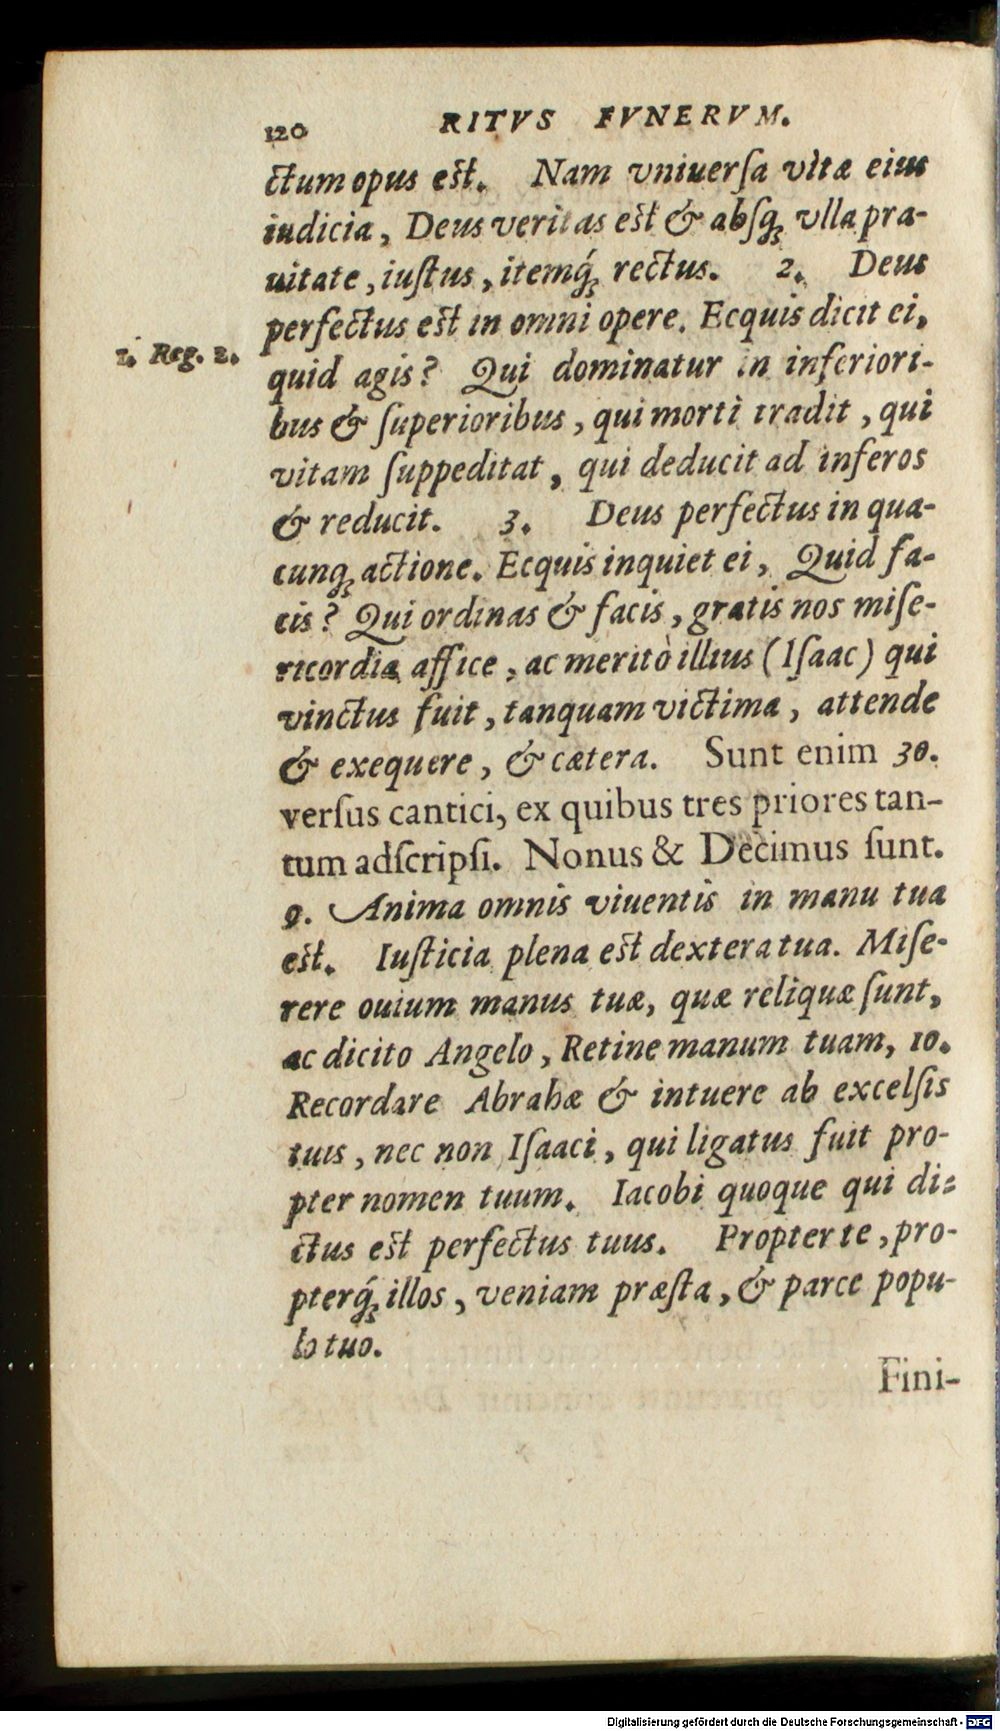 120 RITVS FVNERVM.
ctum opus est. Nam vniuerſa vitæ eius
iudicia, Deus veritas est & abſq; vlla pra-
uitate, iuſtus, itemq́; rectus. 2. Deus
perfectus est in omni opere. Ecquis dicit ei,
1. Reg. 2.
quid agis? Qui dominatur in inferiori-
bus & ſuperioribus, qui morti tradit, qui
vitam ſuppeditat, qui deducit ad inferos
& reducit. 3. Deus perfectus in qua-
cunq; actione. Ecquis inquiet ei, Quid fa-
cis? Qui ordinas & facis, gratis nos miſe-
ricordia affice, ac meritò illius (Iſaac) qui
vinctus fuit, tanquam victima, attende
& exequere, & cætera. Sunt enim 30.
verſus cantici, ex quibus tres priores tan-
tum adſcripſi. Nonus & Decimus ſunt.
9. Anima omnis viuentis in manu tua
est. Iuſticia plena est dextera tua. Miſe-
rere ouium manus tuæ, quæ reliquæ ſunt,
ac dicito Angelo, Retine manum tuam, 10.
Recordare Abrahæ & intuere ab excelſis
tuis, nec non Iſaaci, qui ligatus fuit pro-
pter nomen tuum. Iacobi quoque qui di-
ctus est perfectus tuus. Propter te, pro-
pterq́; illos, veniam præſta, & parce popu-
lo tuo.
Fini-
Digitalisierung gefördert durch die Deutsche Forschungsgemeinschaft - DFG